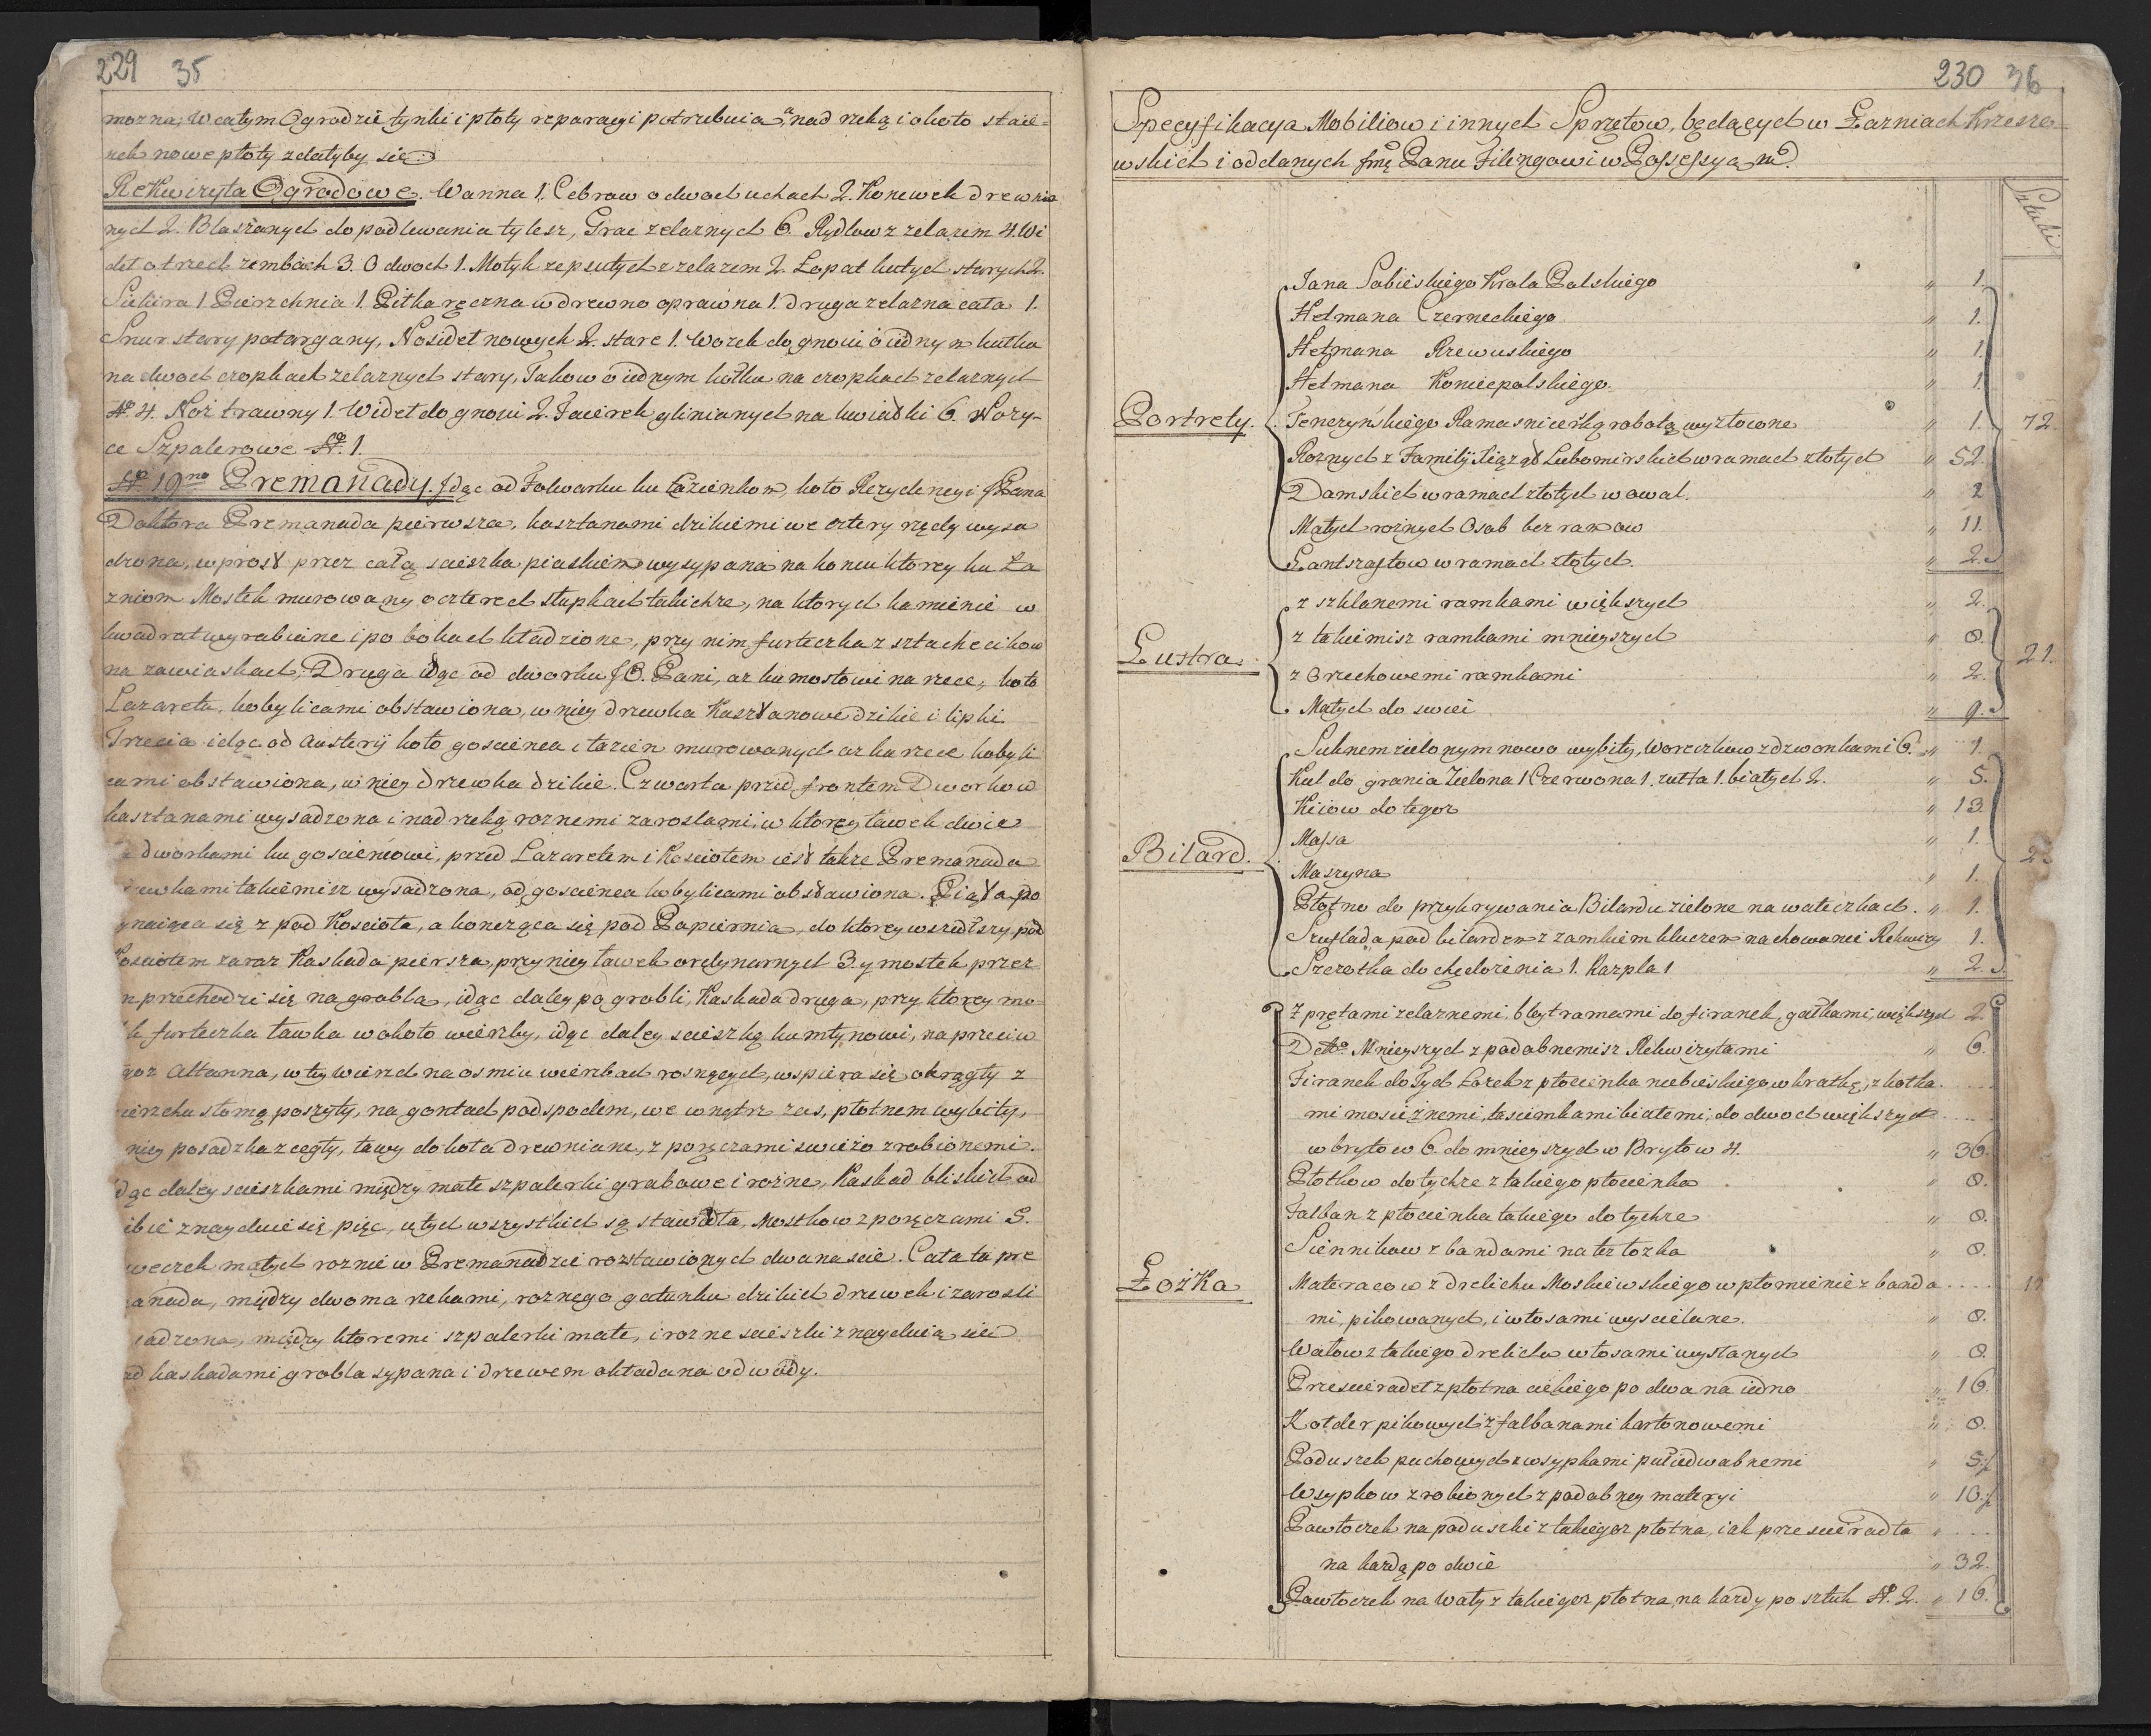 229 35
mozna, W całym Ogrodzie tynki i płoty reparacyi potrzebuią, a nad rzeką i około staie-
nek nowe płoty zdałyby się.
Rekwizyta Ogrodowe. Wanna 1. Cebrow o dwoch uchach 2. Konewek drewnia
nych 2. Blaszanych do podlewania tylesz, Grac zelaznych 6. Rydlow z zelazem 4. Wi
deł o trzech zembach 3. O dwoch 1. Motyk zepsutych z zelazem 2. Łopat kutych starych 2.
Siekira 1. Pierzchnia 1. Piłka ręczna w drewno oprawna 1. druga zelazna cała 1.
Snur stary potargany, Nosideł nowych 2. stare 1. Wozek do gnoiu o iednym kułku
na dwoch czopkach zelaznych stary, Takow o iednym kołku na czopkach zelaznych
N. 4. Noż trawny 1. Wideł do gnoiu 2. Facerek glinianych na kwiatki 6. Nozy-
ce Szpalerowe N. 1.
N. 19no Premanady. Idąc od Folwarku ku Łazienkom, koło Rezydencyi JPana
Doktora Premanada pierwsza, kasztanami dzikiemi we cztery rzędy wysa
dzona, wprost przez całą scieszka piaskiem wysypana na koncu ktorey ku Ła
zniom Mostek murowany o czterech słupkach takichze, na ktorych kamienie w
kwadrat wyrabiane i po bokach kładzione, przy nim furteczka z sztachecikow
na zawiaskach; Druga idąc od dworku JO. Pani, az ku mostowi na rzece, koło
Lazaretu, kobylicami obstawiona, w niey drzewka Kasztanowe dzikie i lipki.
Trzecia idąc od Austeryi koło goscienca i łazien murowanych az ku rzece kobyli
cami obstawiona, w niey drzewka dzikie. Czwarta przed frontem Dworkow
kasztanami wysadzona i nad rzeką roznemi zaroslami, w ktorey ławek dwie
dworkami ku goscieńcowi, przed Lazaretem i Kosciołem iest takze Premanada
ewkami takiemisz wysadzona, od goscienca kobylicami obstawiona. Piąta po
ynaiąca się z pod Kosciola, a koncząca się pod Papiernia, do ktorey wszedłszy, pod
Kosciołem zaraz Kaskada piersza, przy niey ławek ordynarnych 3. y mostek przez
n przechodzi się na grobla, idąc daley po grobli, Kaskada druga, przy ktorey mo-
k furteczka ławka wokoło wierzby, idąc daley scieszką ku młynowi, naprzeciw
goz Altanna, w tey wierzch na osmiu wierzbach rosnących, wspiera się okrągły z
ierzchu słomą poszyty, na gontach podspodem, we wnątrz zas, płotnem wybity,
niey posadzka z cegły, ławy dokoła drewniane, z poręczami swiezo zrobionemi.
dąc daley scieszkami między małe szpalerki grabowe i rożne, Kaskad bliskich od
ibie znayduie się pięc, u tych wszystkich są stawidła, Mostkow z poręczami 5.
weczek małych roznie w Premanadzie rozstawionych dwanascie. Cała ta pre
anada, między dwoma rzekami, roznego gatunku dzikich drzewek i zarosli
adzona, między ktoremi szpalerki małe, i rozne scieszki znayduią się
ad kaskadami grobla sypana i drzewem okładana od wody.
230 36
Specyfikacya Mobiliow i innych Sprzętow, będących w Łazniach Krzeszo-
wskich i oddanych Jmę Panu Filingowi w Possessyą
Sztuki
Portrety.
Jana Sobieskiego Krola Polskiego " 1.
Hetmana Czerneckiego " 1.
Hetmana Rzewuskiego " 1.
Hetmana Koniecpolskiego. " 1.
Tenczyńskiego Rama snicerską robotą wyzłocone " 1. 72.
Roznych z Familij Xiążąt Lubomirskich w ramach złotych " 52.
Damskich w ramach złotych w owal. " 2
Małych roznych Osob bez ramow " 11.
Lantszaftow w ramach złotych. " 2.
Lustra.
z szklanemi ramkami większych " 2.
z takiemisz ramkami mnieyszych " 8. 21.
z Orzechowemi ramkami " 2.
Małych do swiec " 9.
Bilard.
Suknem zielonym nowo wybity, Woreczkow z dzwonkami 6. " 1.
Kul do grania Zielona 1 Czerwona 1. zułta 1. białych 2. " 5.
Kiiow do tegoz " 13.
Massa " 1.
Maszyna " 1.
Płotno do przykrywania Bilardu zielone na wałeczkach. " 1.
Szuflada pod bilardem z zamkiem kluczem na chowanie Rekwizy 1.
Szczotka do chędożenia 1. Karpla 1 " 2.
Łożka
Z prętami zelaznemi, bleytramami do firanek, gałkami, większych 2
Detto Mnieyszych z podobnemisz Rekwizytami " 6.
Firanek do Tych Łozek z płocienka niebieskiego w kratkę, z kołka
mi mosiężnemi, tasiemkami białemi, do dwoch większych
w brytow 6. do mnieyszych w Brytow 4. " 36.
Płotkow do tychze z takiego płocienka " 8.
Falban z płocienka takiego do tychze " 8.
Siennikow z bandami na tez łozka " 8.
Materacow z drelichu Moskiewskiego w płomienie z banda
mi, pikowanych, i włosami wyscielane. " 8.
Wałow z takiego drelichu włosami wysłanych " 8.
Przescieradeł z płotna cienkiego po dwa na iedno " 16.
Kołder pikowych z falbanami kartonowemi " 8.
Poduszek puchowych z wsypkami puł iedwabnemi " 5.
Wsypkow zrobionych z podobney materyi " 10.
Powłoczek na poduszki z takiegoz płotna, iak przescieradła "
na kazdą po dwie " 32.
Powłoczek na Wały z takiegoz płotna, na kazdy po sztuk N. 2. " 16.